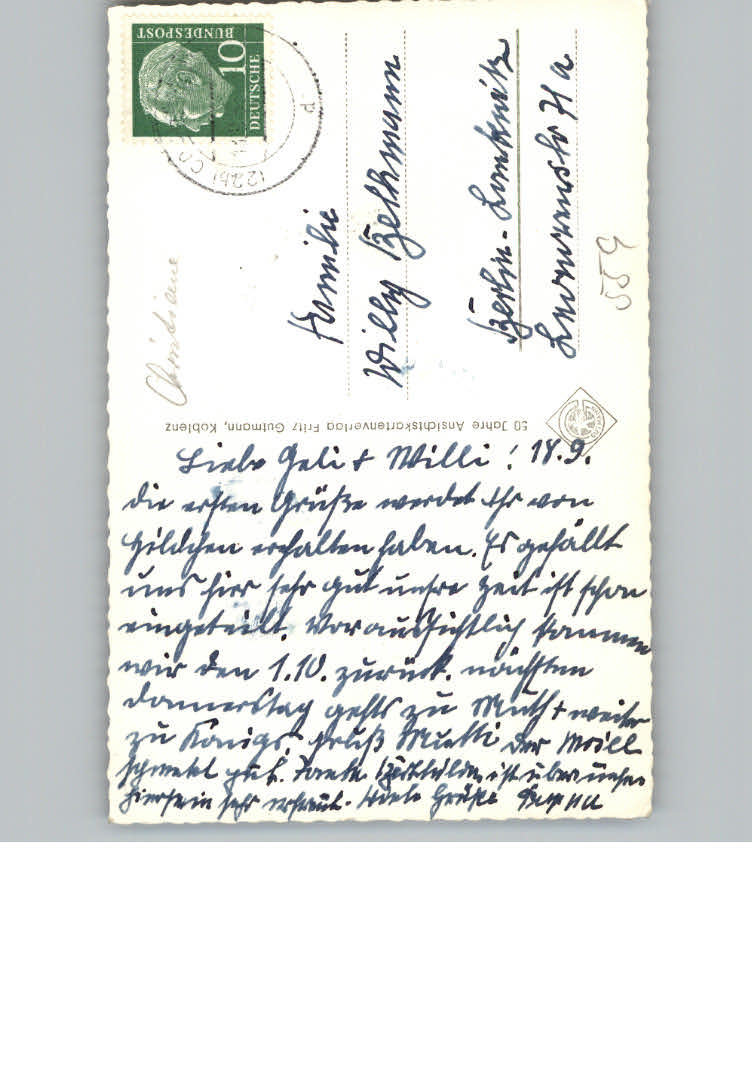 Liebe Geli + Willi! 18.9.
die ersten Grüße werdet Ihr von
Hildchen erhalten haben. Es gefällt
uns hier sehr gut unsre Zeit ist schon
eingeteilt. Voraussichtlich kommen
wir den 1.10. zurück. nächsten
Donnerstag gehts zu Muth + weiter
zu Königs. Gruß Mutti der
schmeckt gut. Tante ist über unser
Hiersein sehr erfreut. Viele Grüße
50 Jahre Ansichtskartenverlag Fritz Gutmann, Koblenz
Christiane
Familie
Willy Bethmann
Berlin-Lankwitz
71a
559
DEUTSCHE
BUNDESPOST
10
(22b)
d